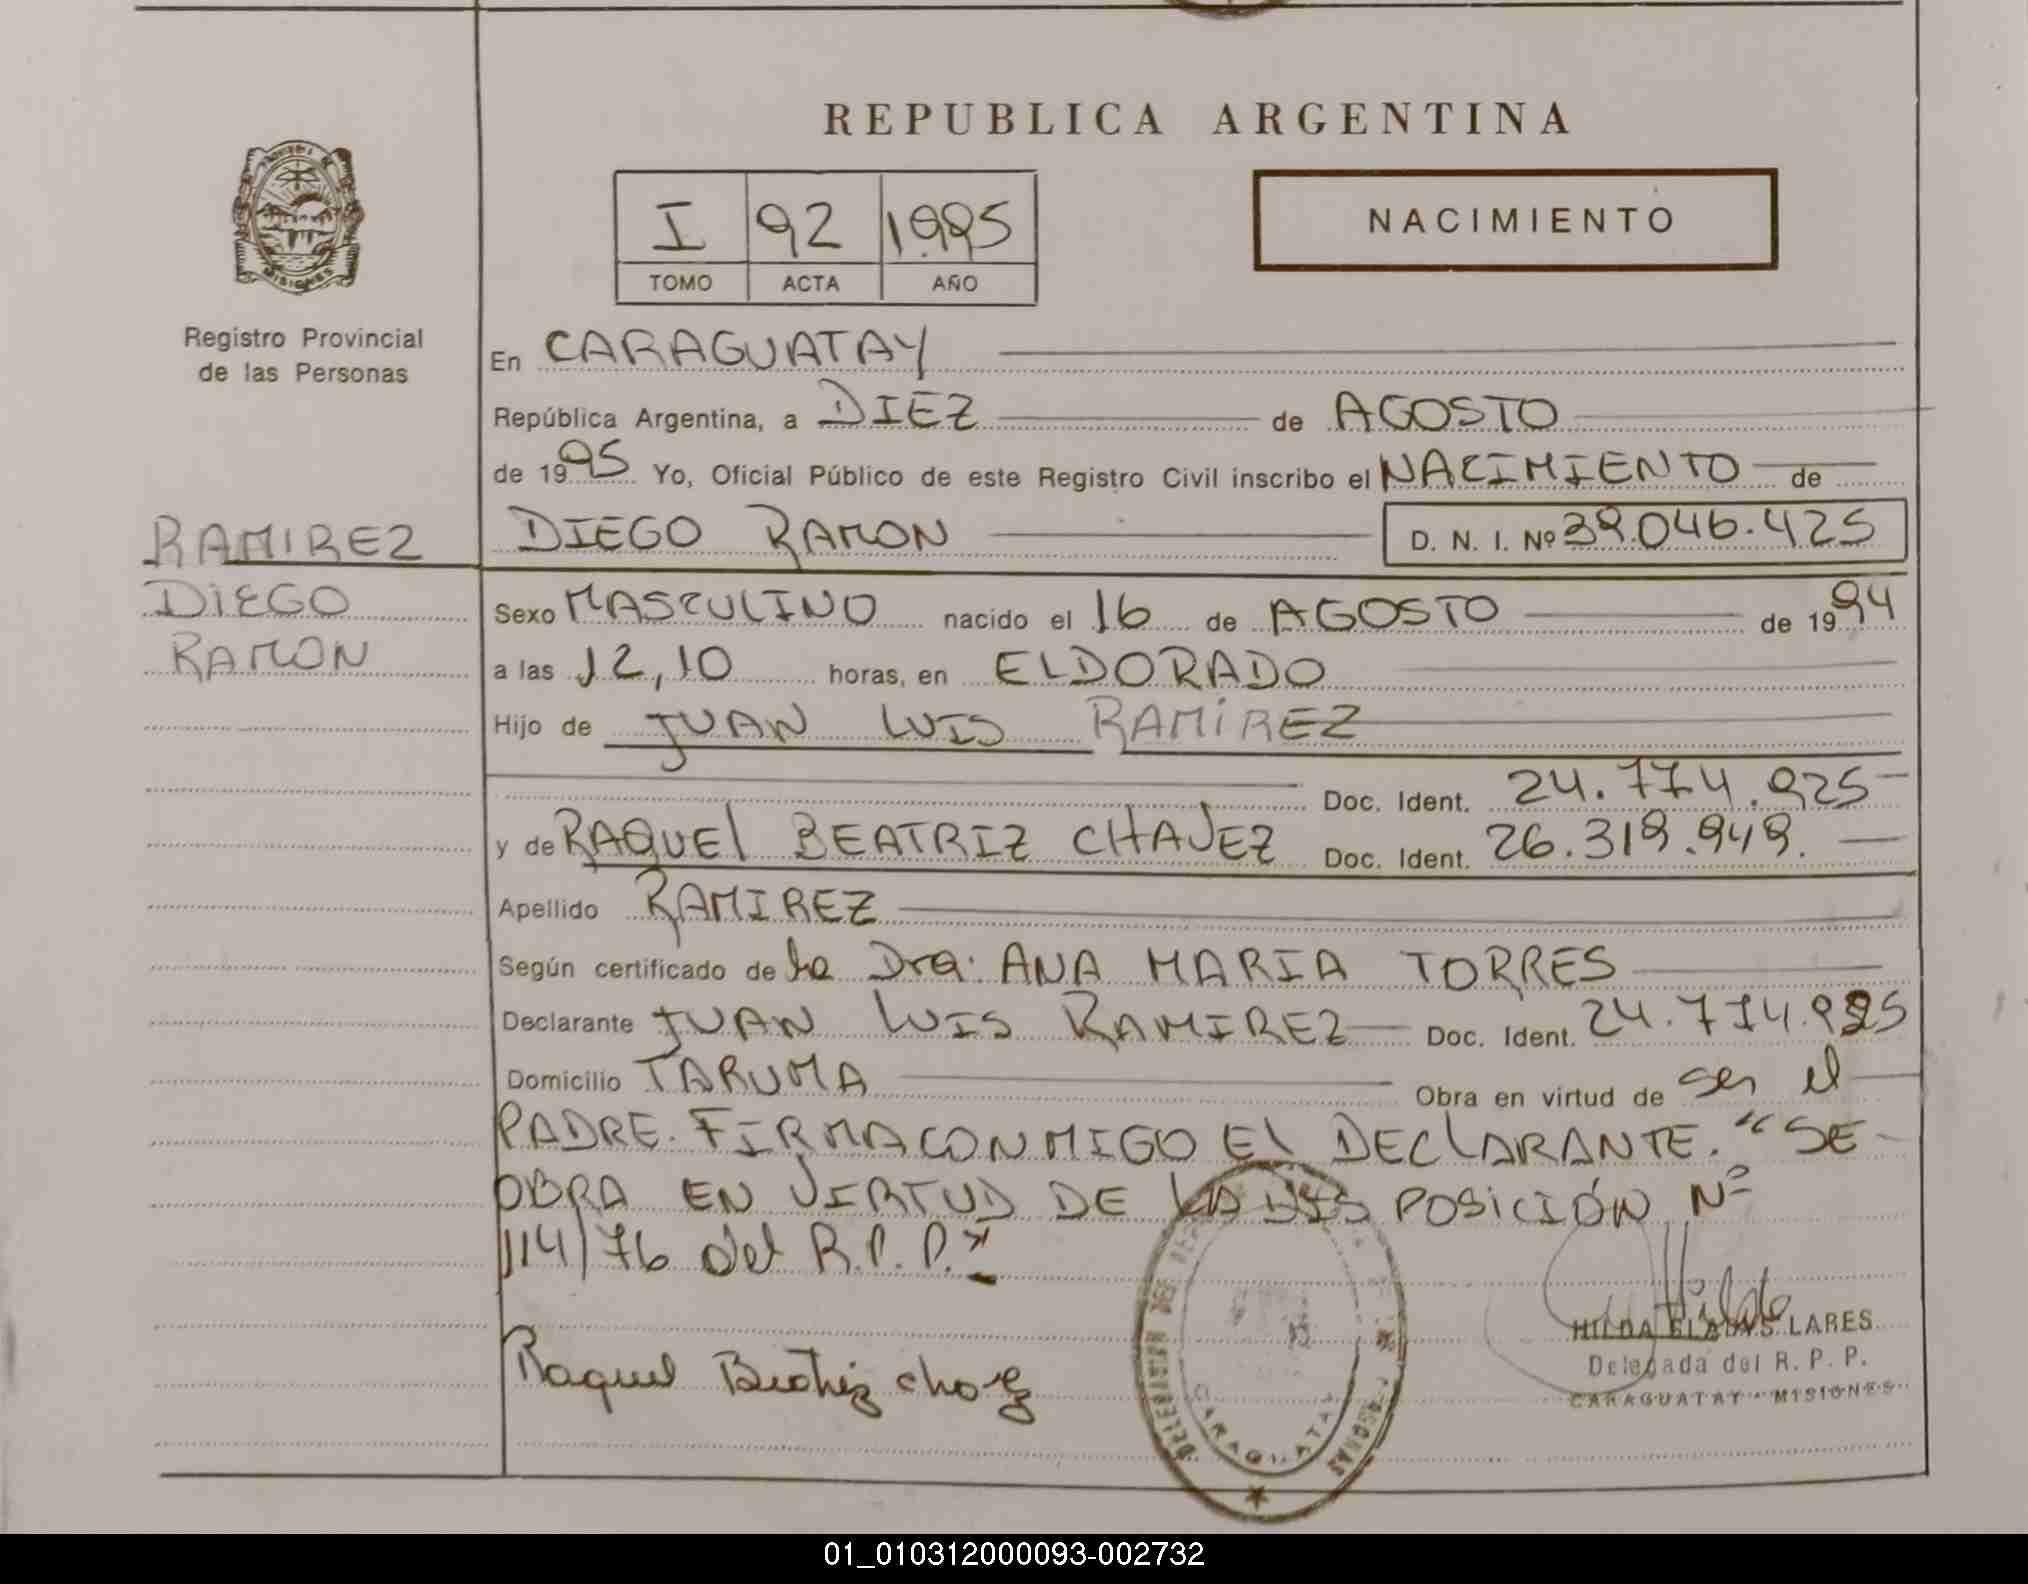 REPUBLICA ARGENTINA
I 92 1995
TOMO ACTA AÑO
NACIMIENTO
MISIONES
Registro Provincial
de las Personas
RAMIREZ
DIEGO
RAMON
En CARAGUATAY
República Argentina, a DIEZ de AGOSTO
de 1995 Yo, Oficial Público de este Registro Civil inscribo el NACIMIENTO de
DIEGO RAMON D. N. I. Nº 39.046.425
Sexo MASCULINO nacido el 16 de AGOSTO de 1994
a las 12,10 horas, en ELDORADO
Hijo de JUAN LUIS RAMIREZ
Doc. Ident. 24.774.925
y de RAQUEL BEATRIZ CHAVEZ Doc. Ident. 26.319.949.
Apellido RAMIREZ
Según certificado de la Dra. ANA MARIA TORRES
Declarante JUAN LUIS RAMIREZ Doc. Ident. 24.774.925
Domicilio TARUMA Obra en virtud de ser el
PADRE. FIRMA CONMIGO El DEClARANTE. "SE
OBRA EN VIRTUD DE LA DISPOSICIÓN Nº
114/76 del R.P.P."
Raquel Beatriz
HILDA GLADYS LARES
Delegada del R. P. P.
CARAGUATAY - MISIONES
CARAGUATAY
01_010312000093-002732